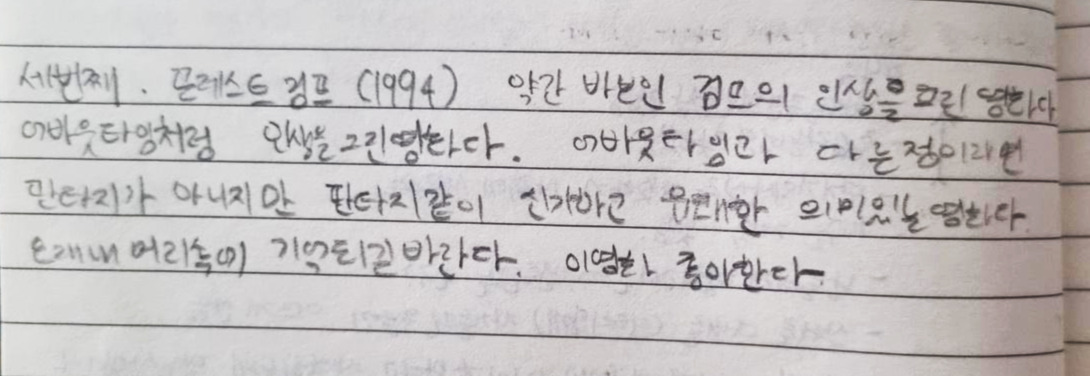 세번째. 포레스트 검프 (1994) 약간 바보인 검프의 인생을 그린 영화다
어바웃타임처럼 인생을 그린영화다. 어바웃타임과 다른점이라면
판타지가 아니지만 판타지같이 신기하고 유쾌한 의미있는 영화다.
오래 내 머리속에 기억되길 바란다. 이영화 좋아한다.